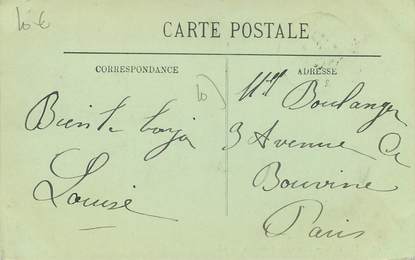 10 €
CARTE POSTALE
CORRESPONDANCE
ADRESSE
10
Bien le bonjour
Louise
Mlle Boulanger
3 Avenue de
Bouvine
Paris